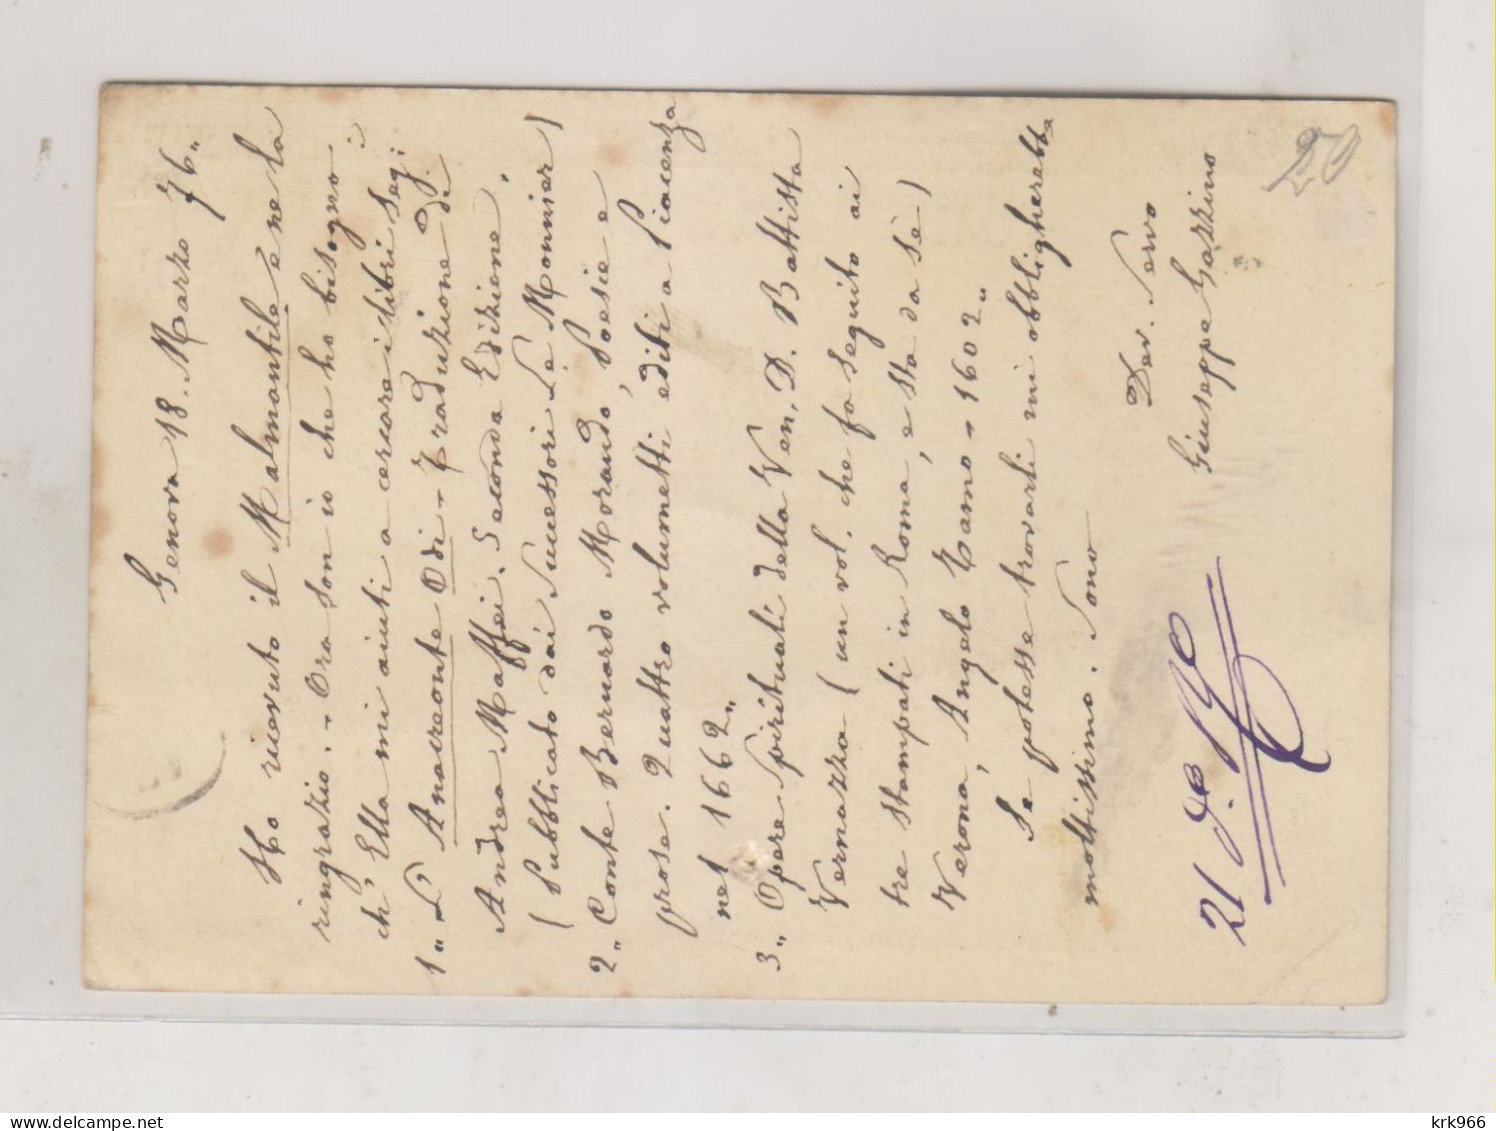 Genova 18. Marzo 76„
Ho ricevuto il Malmantile e ne la
ringrazio. - Ora son io che ho bisogno
ch' Ella mi aiuti a cercare i libri seg:i
1„ L' Anacreonte Odi - Traduzione di
Andrea Maffei. Seconda Edizione.
(Pubblicato dai Successori Le Monnier)
2„ Conte Bernardo Morando, Poesie e
prose. Quattro volumetti editi a Piacenza
nel 1662„
3„ Opere Spirituali della Ven. D. Battista
Vernazza (un vol. che fa seguito ai
tre stampati in Roma, e sta da sè)
Verona, Angelo Tamo - 1602„
Se potesse trovarli mi obbligherebbe
moltissimo. Sono
Dev. Servo
Giuseppe Gazzino
20
21
krk966